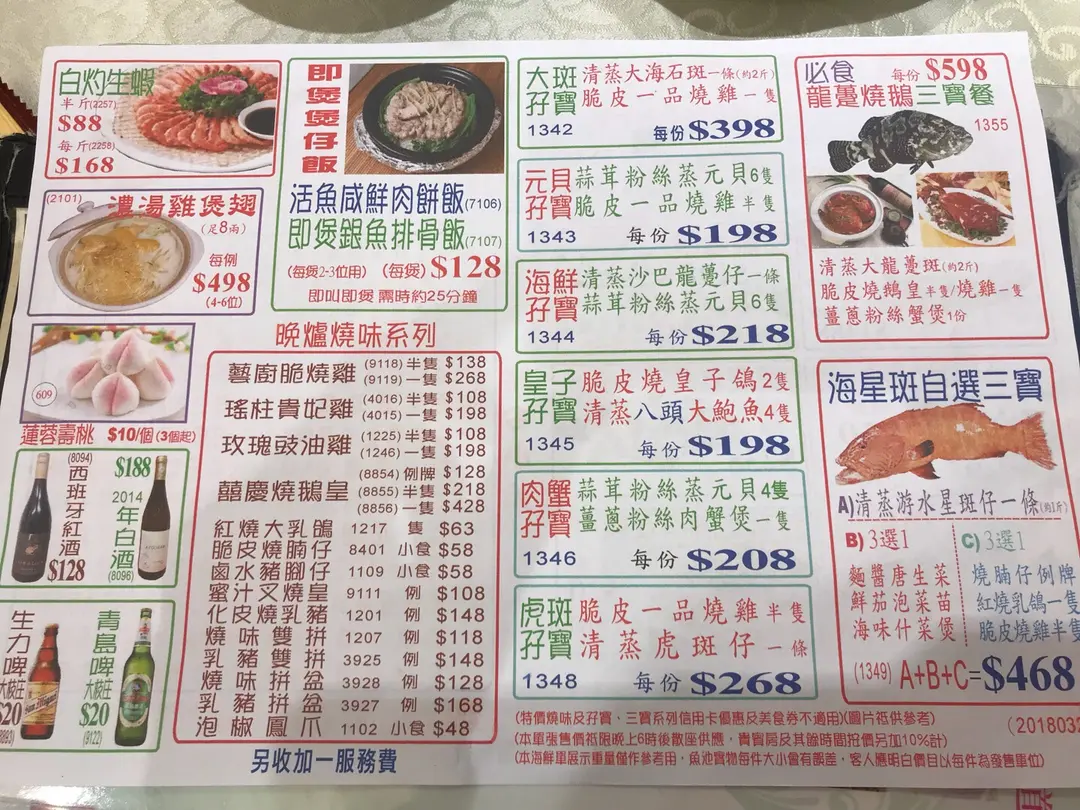 白灼生蝦
半斤(2257)
$88
每斤(2258)
$168
(2101)
濃湯雞煲翅
(足8兩)
每例
$498
(4-6位)
609
蓮蓉壽桃 $10/個(3個起)
(8094)
西班牙紅酒
$128
$188
2014年白酒
(8096)
生力啤
大樽庄
$20
青島啤
大樽庄
$20
(9122)
即煲煲仔飯
活魚咸鮮肉餅飯(7106)
即煲銀魚排骨飯(7107)
(每煲2-3位用) (每煲) $128
即叫即煲 需時約25分鐘
晚爐燒味系列
藝廚脆燒雞 (9118)半隻 $138
(9119)一隻 $268
瑤柱貴妃雞 (4016)半隻 $108
(4015)一隻 $198
玫瑰豉油雞 (1225)半隻 $108
(1246)一隻 $198
囍慶燒鵝皇 (8854)例牌 $128
(8855)半隻 $218
(8856)一隻 $428
紅燒大乳鴿 1217 隻 $63
脆皮燒腩仔 8401 小食 $58
鹵水豬腳仔 1109 小食 $58
蜜汁叉燒皇 9111 例 $108
化皮燒乳豬 1201 例 $148
燒味雙拼 1207 例 $118
乳豬雙拼 3925 例 $148
燒味拼盆 3928 例 $128
乳豬拼盆 3927 例 $168
泡椒鳳爪 1102 小食 $48
另收加一服務費
大斑孖寶
清蒸大海石斑一條(約2斤)
脆皮一品燒雞一隻
1342 每份 $398
元貝孖寶
蒜茸粉絲蒸元貝6隻
脆皮一品燒雞半隻
1343 每份 $198
海鮮孖寶
清蒸沙巴龍躉仔一條
蒜茸粉絲蒸元貝6隻
1344 每份 $218
皇子孖寶
脆皮燒皇子鴿2隻
清蒸八頭大鮑魚4隻
1345 每份 $198
肉蟹孖寶
蒜茸粉絲蒸元貝4隻
薑蔥粉絲肉蟹煲一隻
1346 每份 $208
虎斑孖寶
脆皮一品燒雞半隻
清蒸虎斑仔一條
1348 每份 $268
必食 每份 $598
龍躉燒鵝三寶餐
1355
清蒸大龍躉斑(約2斤)
脆皮燒鵝皇半隻/燒雞一隻
薑蔥粉絲蟹煲1份
海星斑自選三寶
A)清蒸游水星斑仔一條(約1斤)
B)3選1
麵醬唐生菜
鮮茄泡菜苗
海味什菜煲
C)3選1
燒腩仔例牌
紅燒乳鴿一隻
脆皮燒雞半隻
(1349) A+B+C=$468
(特價燒味及孖寶、三寶系列信用卡優惠及美食券不適用)(圖片祗供參考)
(本單張售價祗限晚上6時後散座供應，貴賓房及其餘時間按價另加10%計)
(本海鮮單展示重量僅作參考用，魚池實物每件大小會有誤差，客人應明白價目以每件為發售單位)